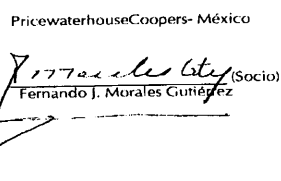 PricewaterhouseCoopers- México
(Socio)
Fernando J. Morales Gutiérrez